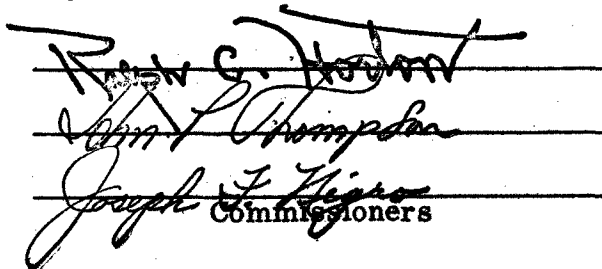 C. Horton
John P Thompson
Joseph F. Nigro
Commissioners